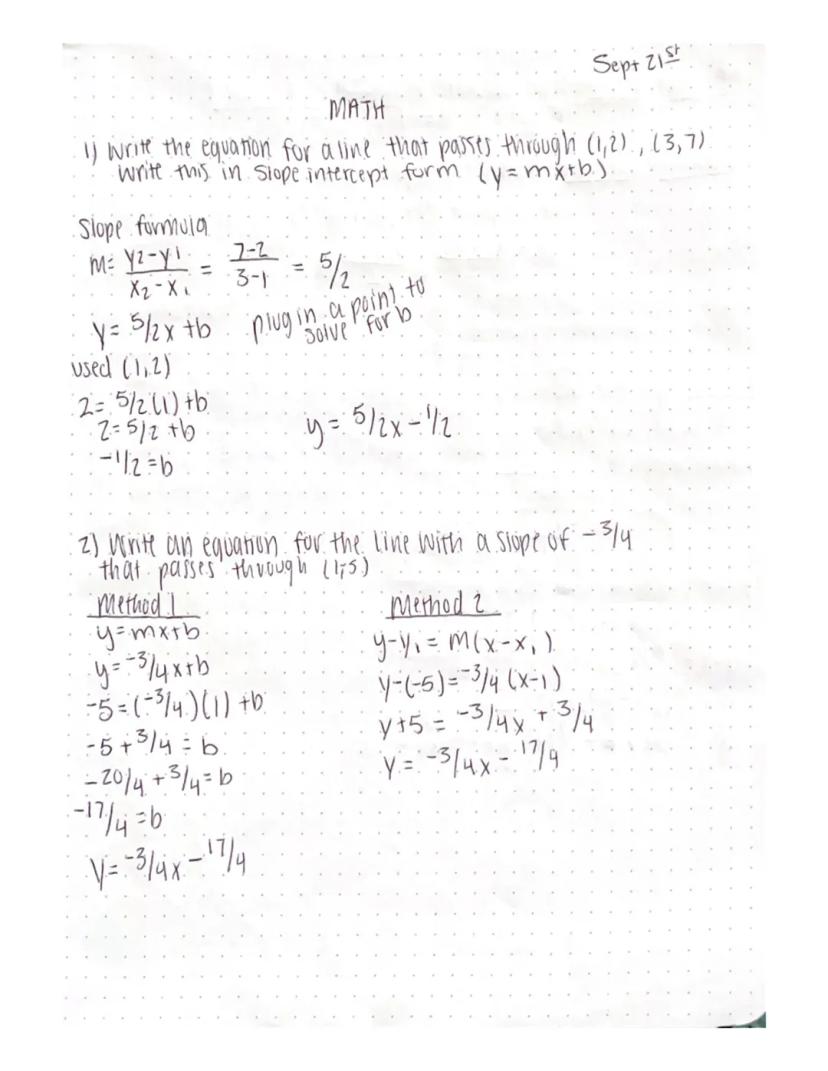 Sept 21st
MATH
1) Write the equation for a line that passes through (1,2), (3,7)
Write this in slope intercept form (y=mx+b)
Slope formula
m= y2-y1 / x2-x1 = 7-2 / 3-1 = 5/2
y= 5/2x +b plug in a point to
solve for b
used (1,2)
2= 5/2(1)+b
2=5/2 +b
-1/2=b
y= 5/2x -1/2
2) Write an equation for the line with a slope of -3/4
that passes through (1,-5)
Method 1
y=mx+b
y=-3/4x+b
-5=(-3/4)(1) +b
-5+3/4=b
-20/4+3/4=b
-17/4=b
y=-3/4x-17/4
Method 2
y-y1=m(x-x1)
y-(-5)=-3/4(x-1)
y+5 = -3/4x + 3/4
y= -3/4x - 17/4